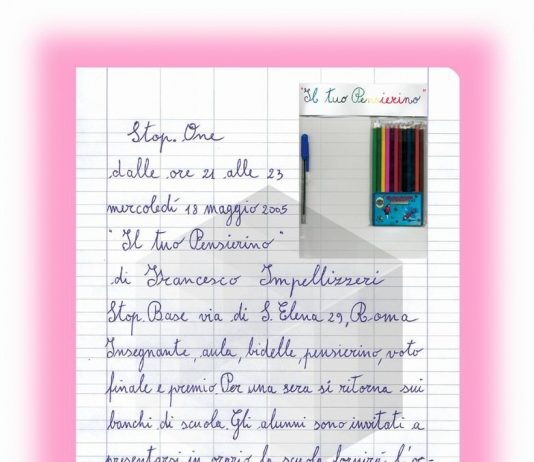 "Il tuo Pensierino"
Stop. One
dalle ore 21 alle 23
mercoledí 18 maggio 2005
"Il tuo Pensierino"
di Francesco Impellizzeri
Stop. Base via di S. Elena 29, Roma
Insegnante, aula, bidelle, pensierino, voto
finale e premio. Per una sera si ritorna sui
banchi di scuola. Gli alunni sono invitati a
presentarsi in orario la scuola fornirà l'oc-